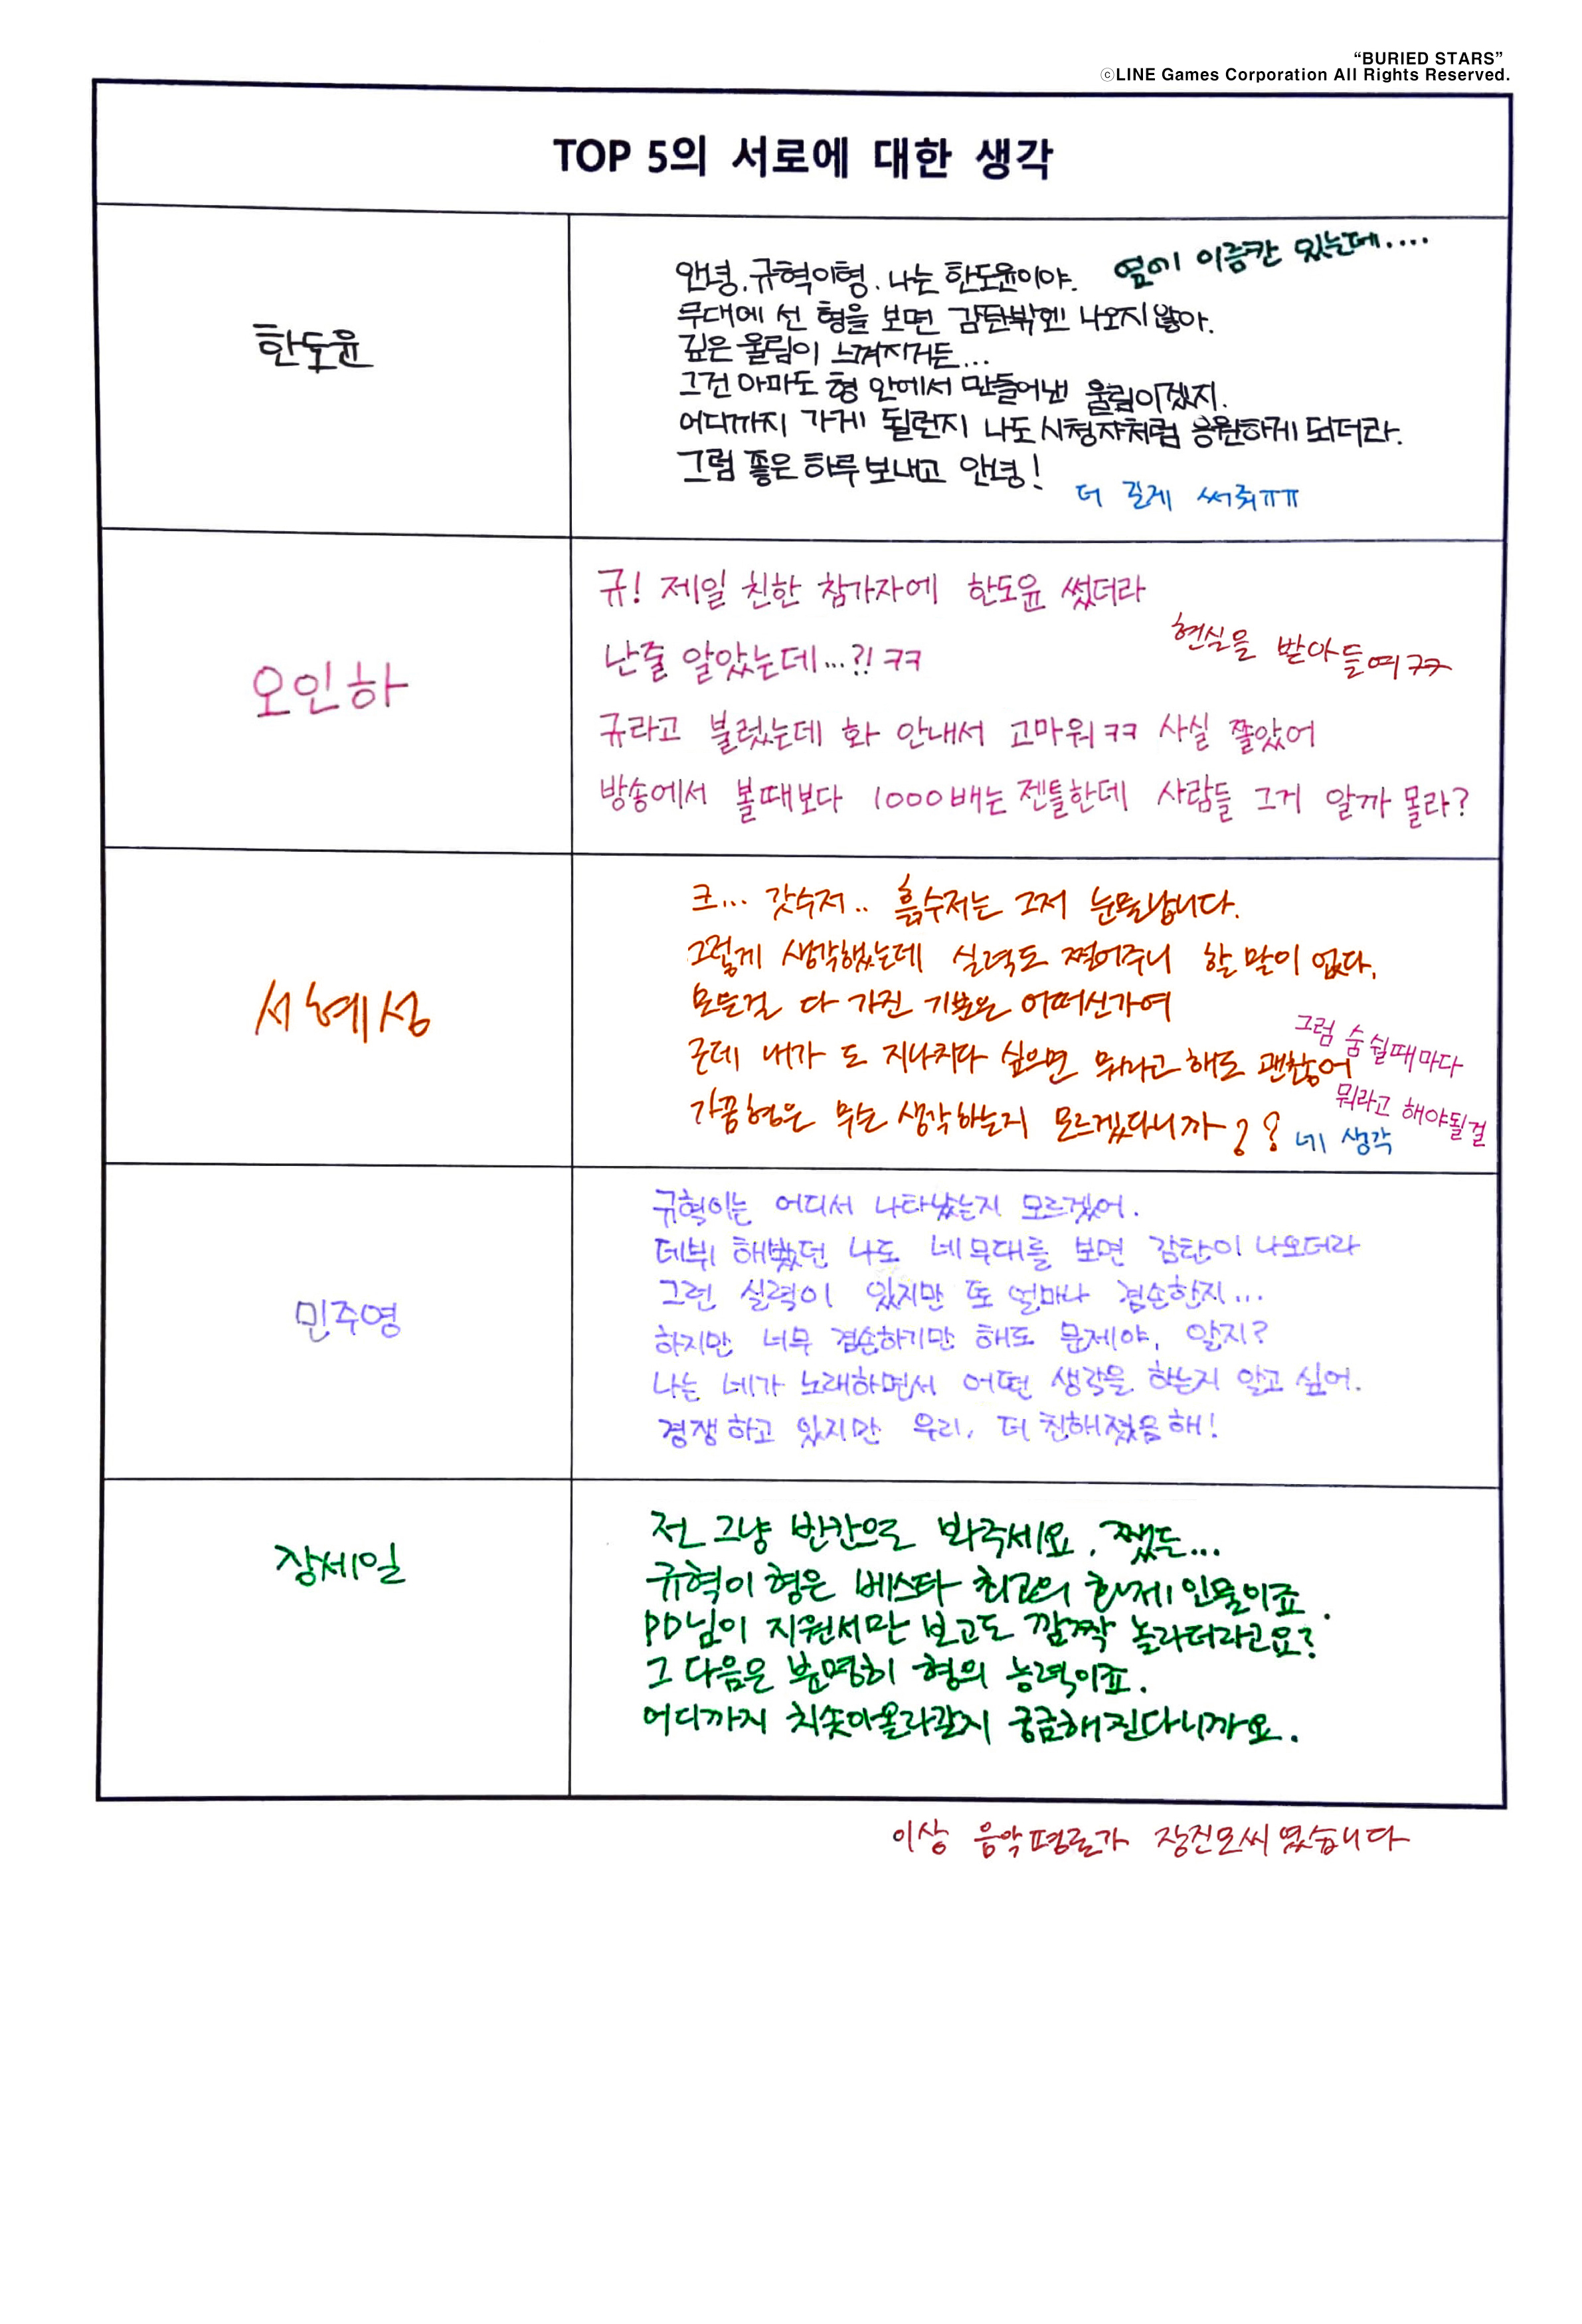 “BURIED STARS”
ⓒLINE Games Corporation All Rights Reserved.
TOP 5의 서로에 대한 생각
한도윤
안녕. 규혁이형. 나는 한도윤이야.
옆에 이름칸 있는데....
무대에 선 형을 보면 감탄밖엔 나오지 않아.
깊은 울림이 느껴지거든...
그건 아마도 형 안에서 만들어낸 울림이겠지.
어디까지 가게 될런지 나도 시청자처럼 응원하게 되더라.
그럼 좋은 하루 보내고 안녕!
더 길게 써줘ㅠㅠ
오인하
규! 제일 친한 참가자에 한도윤 썼더라
난줄 알았는데...?! ㅋㅋ
현실을 받아들여 ㅋㅋ
규라고 불렀는데 화 안내서 고마워 ㅋㅋ 사실 쫄았어
방송에서 볼때보다 1000배는 젠틀한데 사람들 그거 알까 몰라?
서혜성
크... 갓수저.. 흙수저는 그저 눈물납니다.
그렇게 생각했는데 실력도 쩔어주니 할 말이 없다.
모든걸 다 가진 기분은 어떠신가여
근데 내가 도 지나치다 싶으면 뭐라고 해도 괜찮어
그럼 숨 쉴때마다
뭐라고 해야될걸
가끔 형은 무슨 생각하는지 모르겠다니까??
네 생각
민주영
규혁이는 어디서 나타났는지 모르겠어.
데뷔 해봤던 나도 네 무대를 보면 감탄이 나오더라
그런 실력이 있지만 또 얼마나 겸손한지...
하지만 너무 겸손하기만 해도 문제야, 알지?
나는 네가 노래하면서 어떤 생각을 하는지 알고 싶어.
경쟁하고 있지만 우리, 더 친해졌음 해!
장세일
전 그냥 반칸으로 봐주세요. 쨌든...
규혁이 형은 베스타 최고의 화제 인물이죠.
PD님이 지원서만 보고도 깜짝 놀라더라고요?
그 다음은 분명히 형의 능력이죠.
어디까지 치솟아올라갈지 궁금해진다니까요.
이상 음악평론가 장진모씨 였습니다